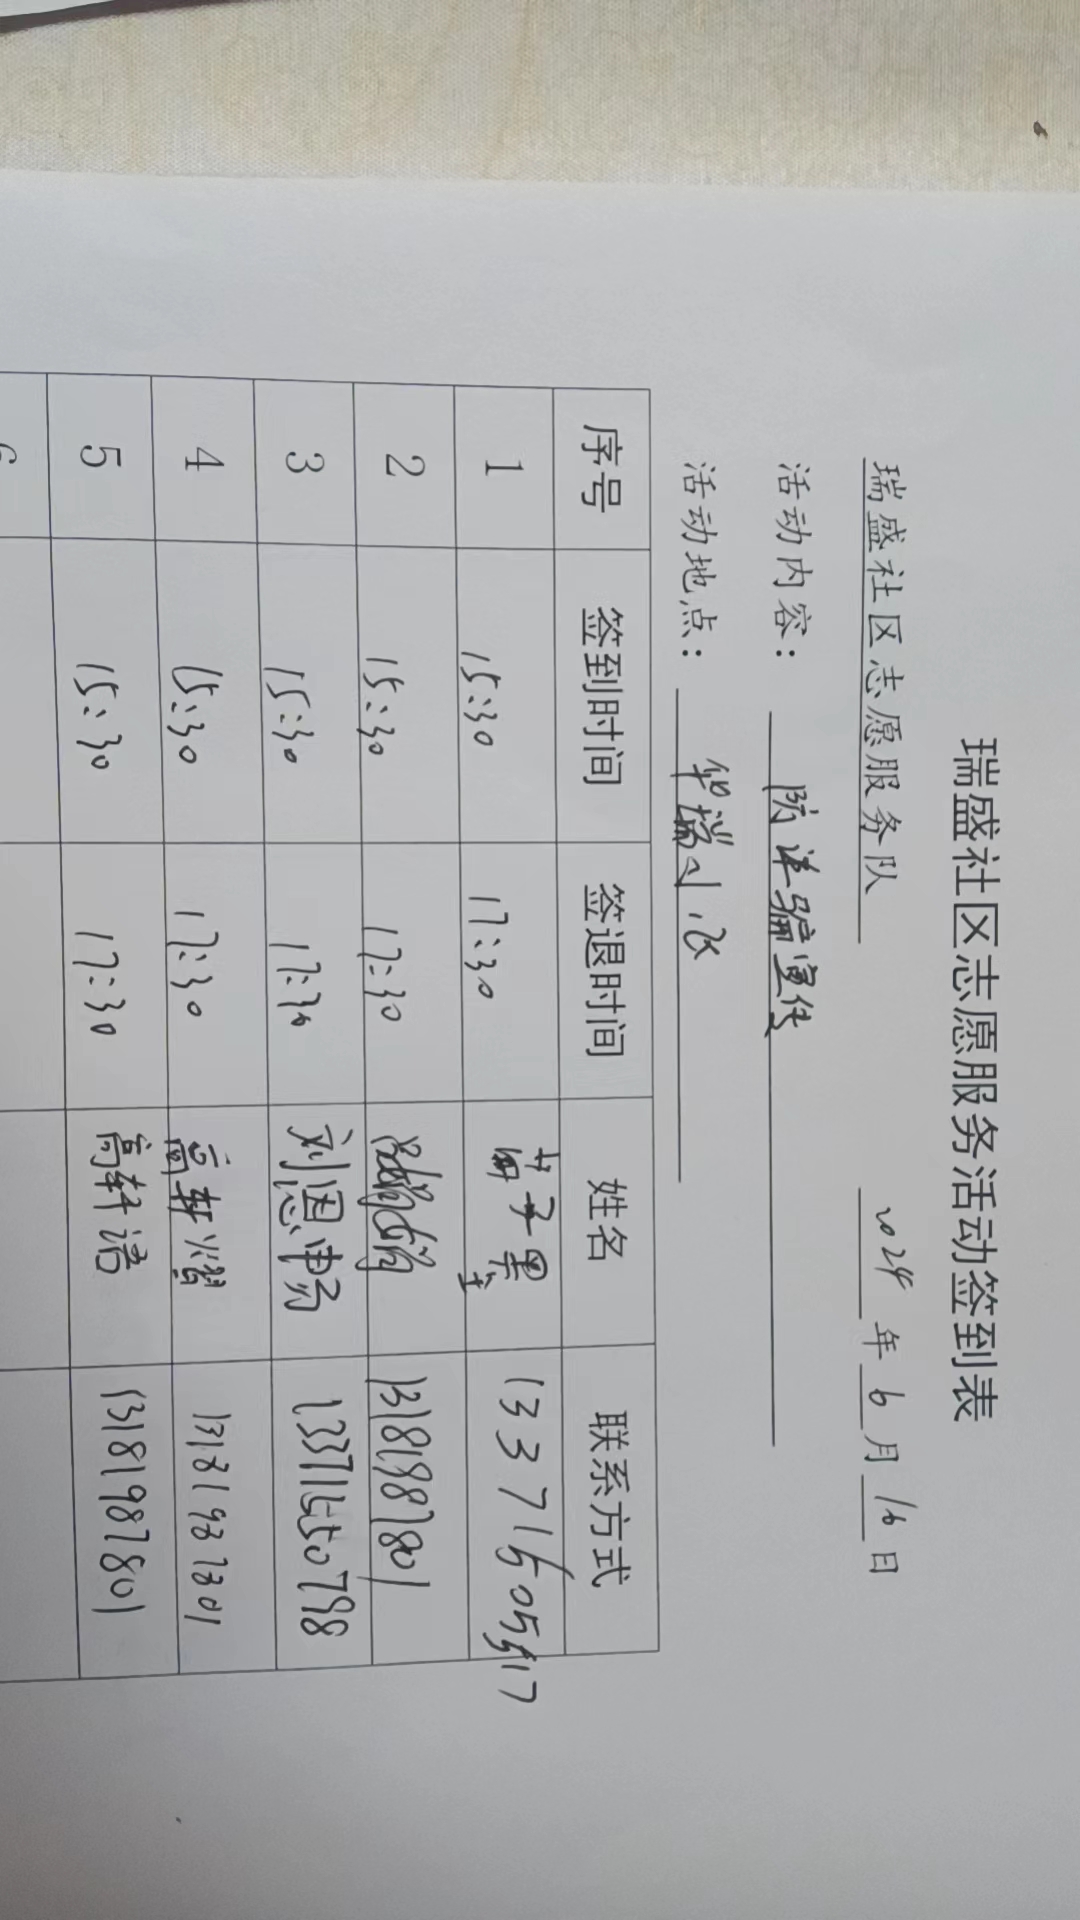 瑞盛社区志愿服务活动签到表
瑞盛社区志愿服务队 2024 年 6 月 16 日
活动内容： 防诈骗宣传
活动地点： 华瑞小区
序号 签到时间 签退时间 姓名 联系方式
1 15:30 17:30
2 15:30 17:30 13181987801
3 15:30 17:30 刘恩 13371550798
4 15:30 17:30 高轩 13181987801
5 15:30 17:30 高轩语 13181987801